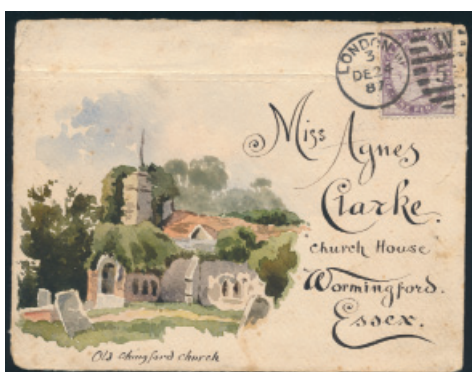 LONDON
3
DE 24
87
W
5
Miss Agnes
Clarke.
Church House
Wormingford.
Essex.
Old Chingford Church